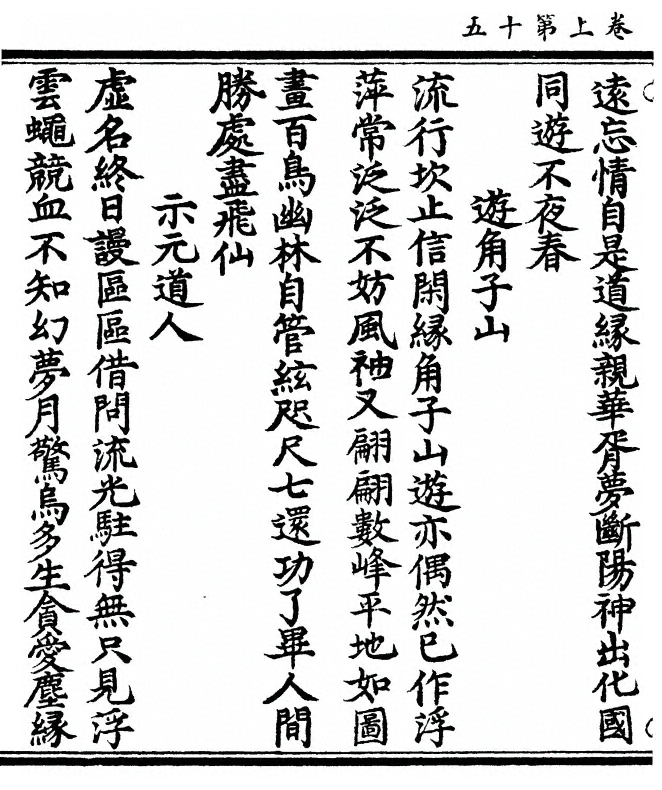 卷上第十五
遠忘情自是道緣親華胥夢斷陽神出化國
同遊不夜春
遊角子山
流行坎止信閑緣角子山遊亦偶然已作浮
萍常泛泛不妨風袖又翩翩數峰平地如圖
畫百鳥幽林自管絃咫尺七還功了畢人間
勝處盡飛仙
示元道人
虛名終日謾區區借問流光駐得無只見浮
雲蠅競血不知幻夢月驚烏多生貪愛塵緣